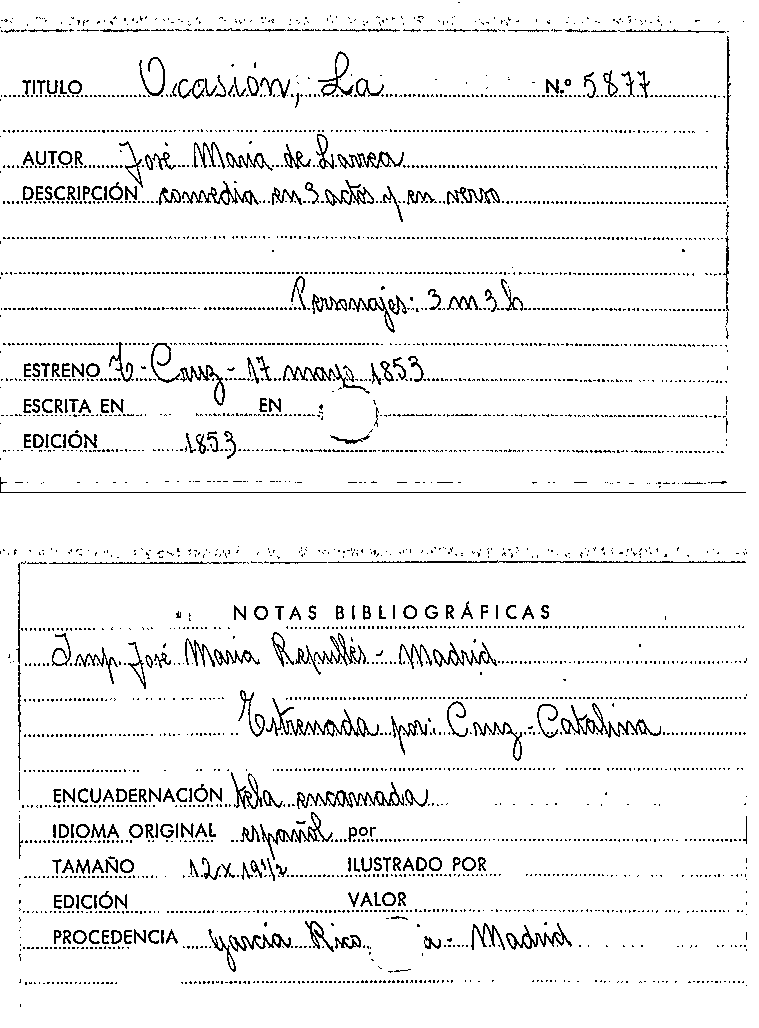 TITULO Ocasión, La N.º 5877
AUTOR José María de Larrea
DESCRIPCIÓN comedia en 3 actos y en verso
Personajes: 3 m 3 h
ESTRENO T. Cruz - 17 mayo 1853
ESCRITA EN EN
EDICIÓN 1853
NOTAS BIBLIOGRÁFICAS
Imp. José María Repullés - Madrid
Estrenada por: Cruz - Catalina
ENCUADERNACIÓN tela encarnada
IDIOMA ORIGINAL español por
TAMAÑO 12x19 1/2 ILUSTRADO POR
EDICIÓN VALOR
PROCEDENCIA García Rico a - Madrid